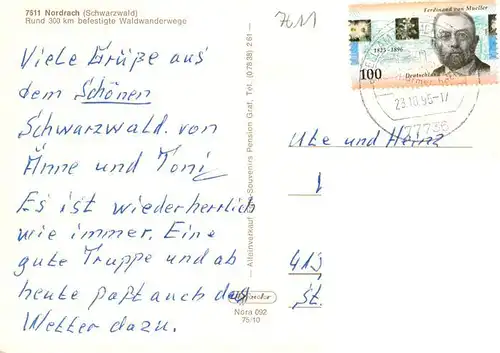 7611 Nordrach (Schwarzwald)
Rund 300 km befestigte Waldwanderwege
7611
Ferdinand von Mueller
1825-1896
100
Deutschland
23.10.96-17
77736
Viele Grüße aus
dem Schönen
Schwarzwald von
Änne und Toni
Es ist wieder herrlich
wie immer. Eine
gute Truppe und ab
heute paßt auch das
Wetter dazu.
Alleinverkauf Souvenirs Pension Graf, Tel. (07838) 261
Nora 092
75/10
Ute und Heinz
413
St.